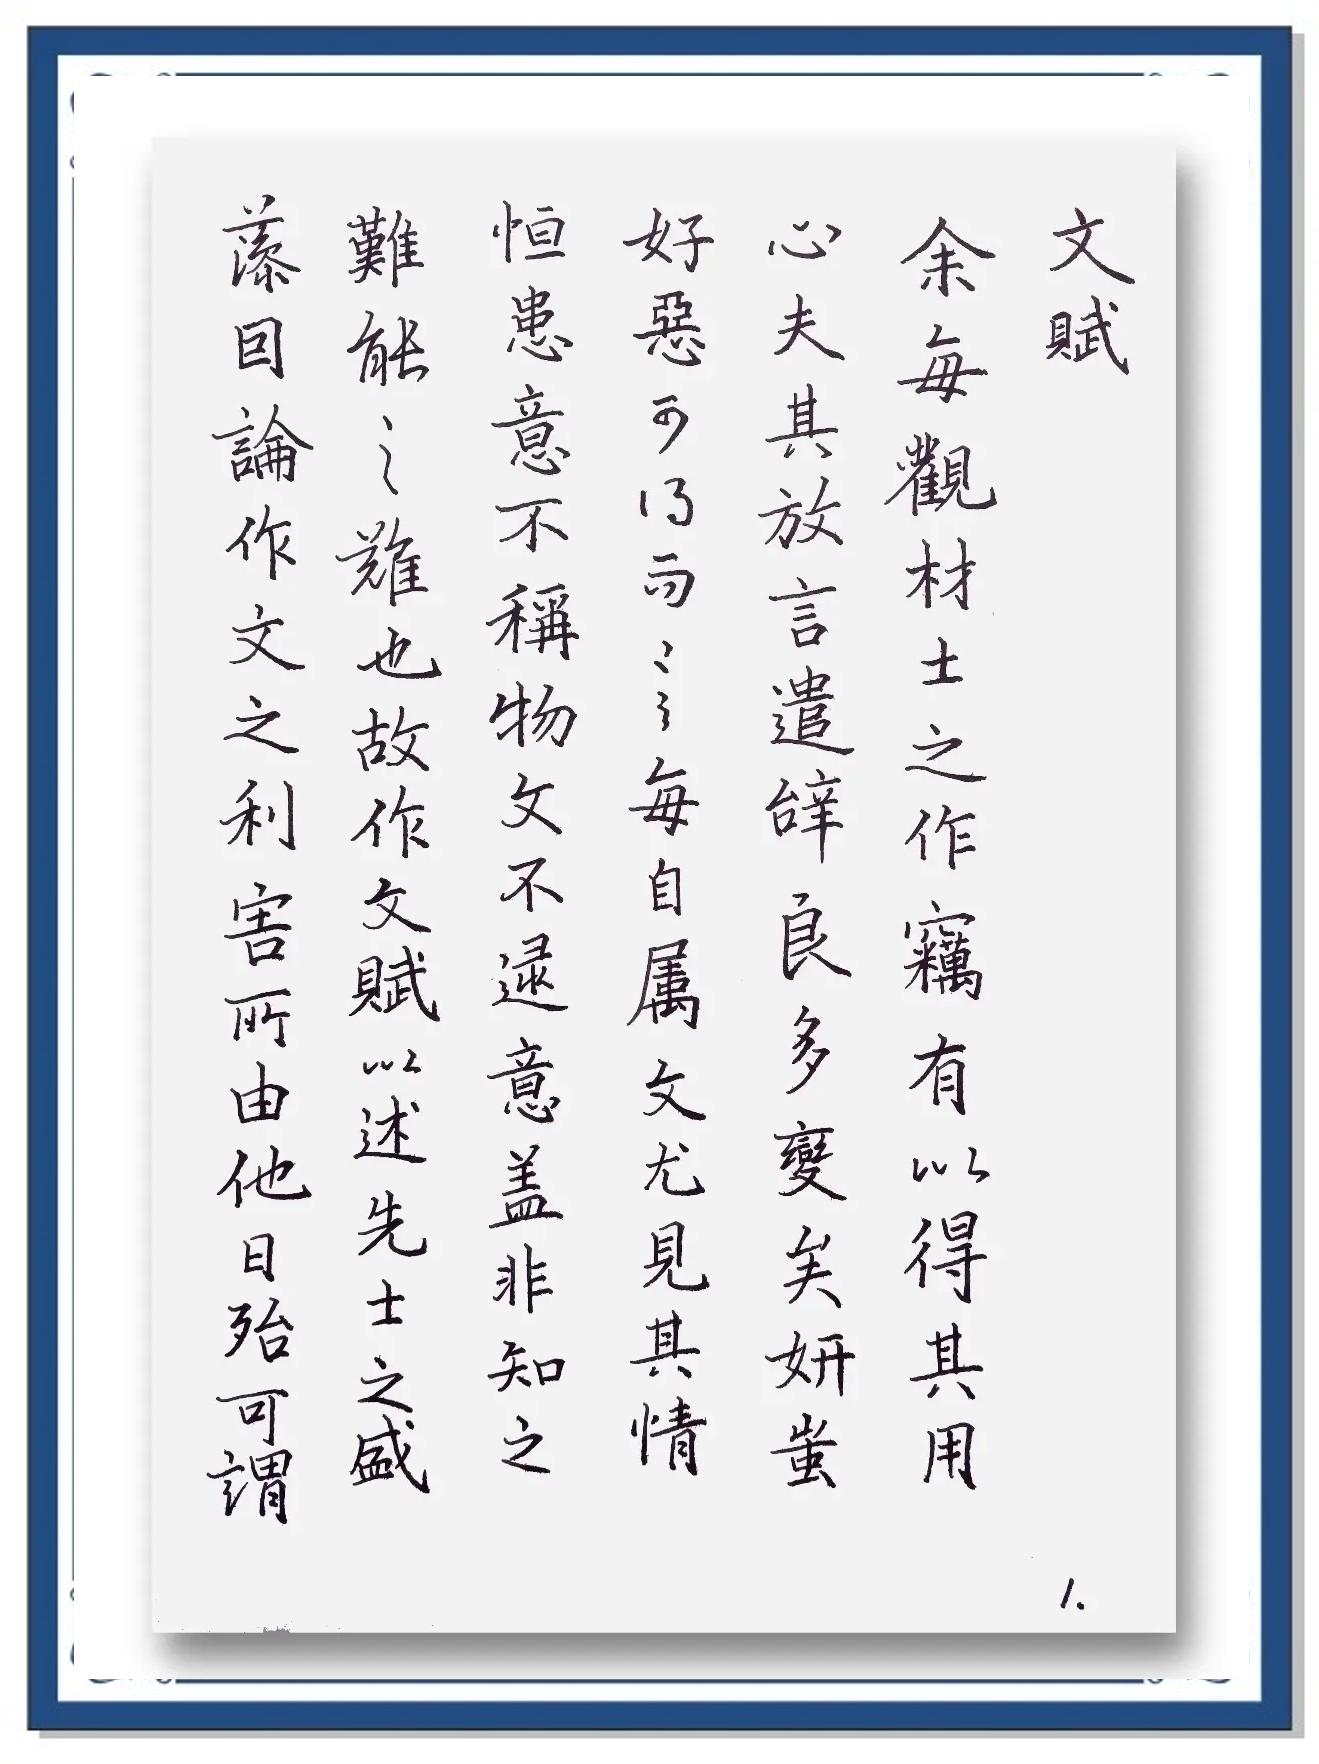 文賦
余每觀材士之作竊有以得其用
心夫其放言遣辝良多變矣妍蚩
好惡可得而言每自属文尤見其情
恒患意不稱物文不逮意盖非知之
難能之難也故作文賦以述先士之盛
藻因論作文之利害所由他日殆可謂
1.